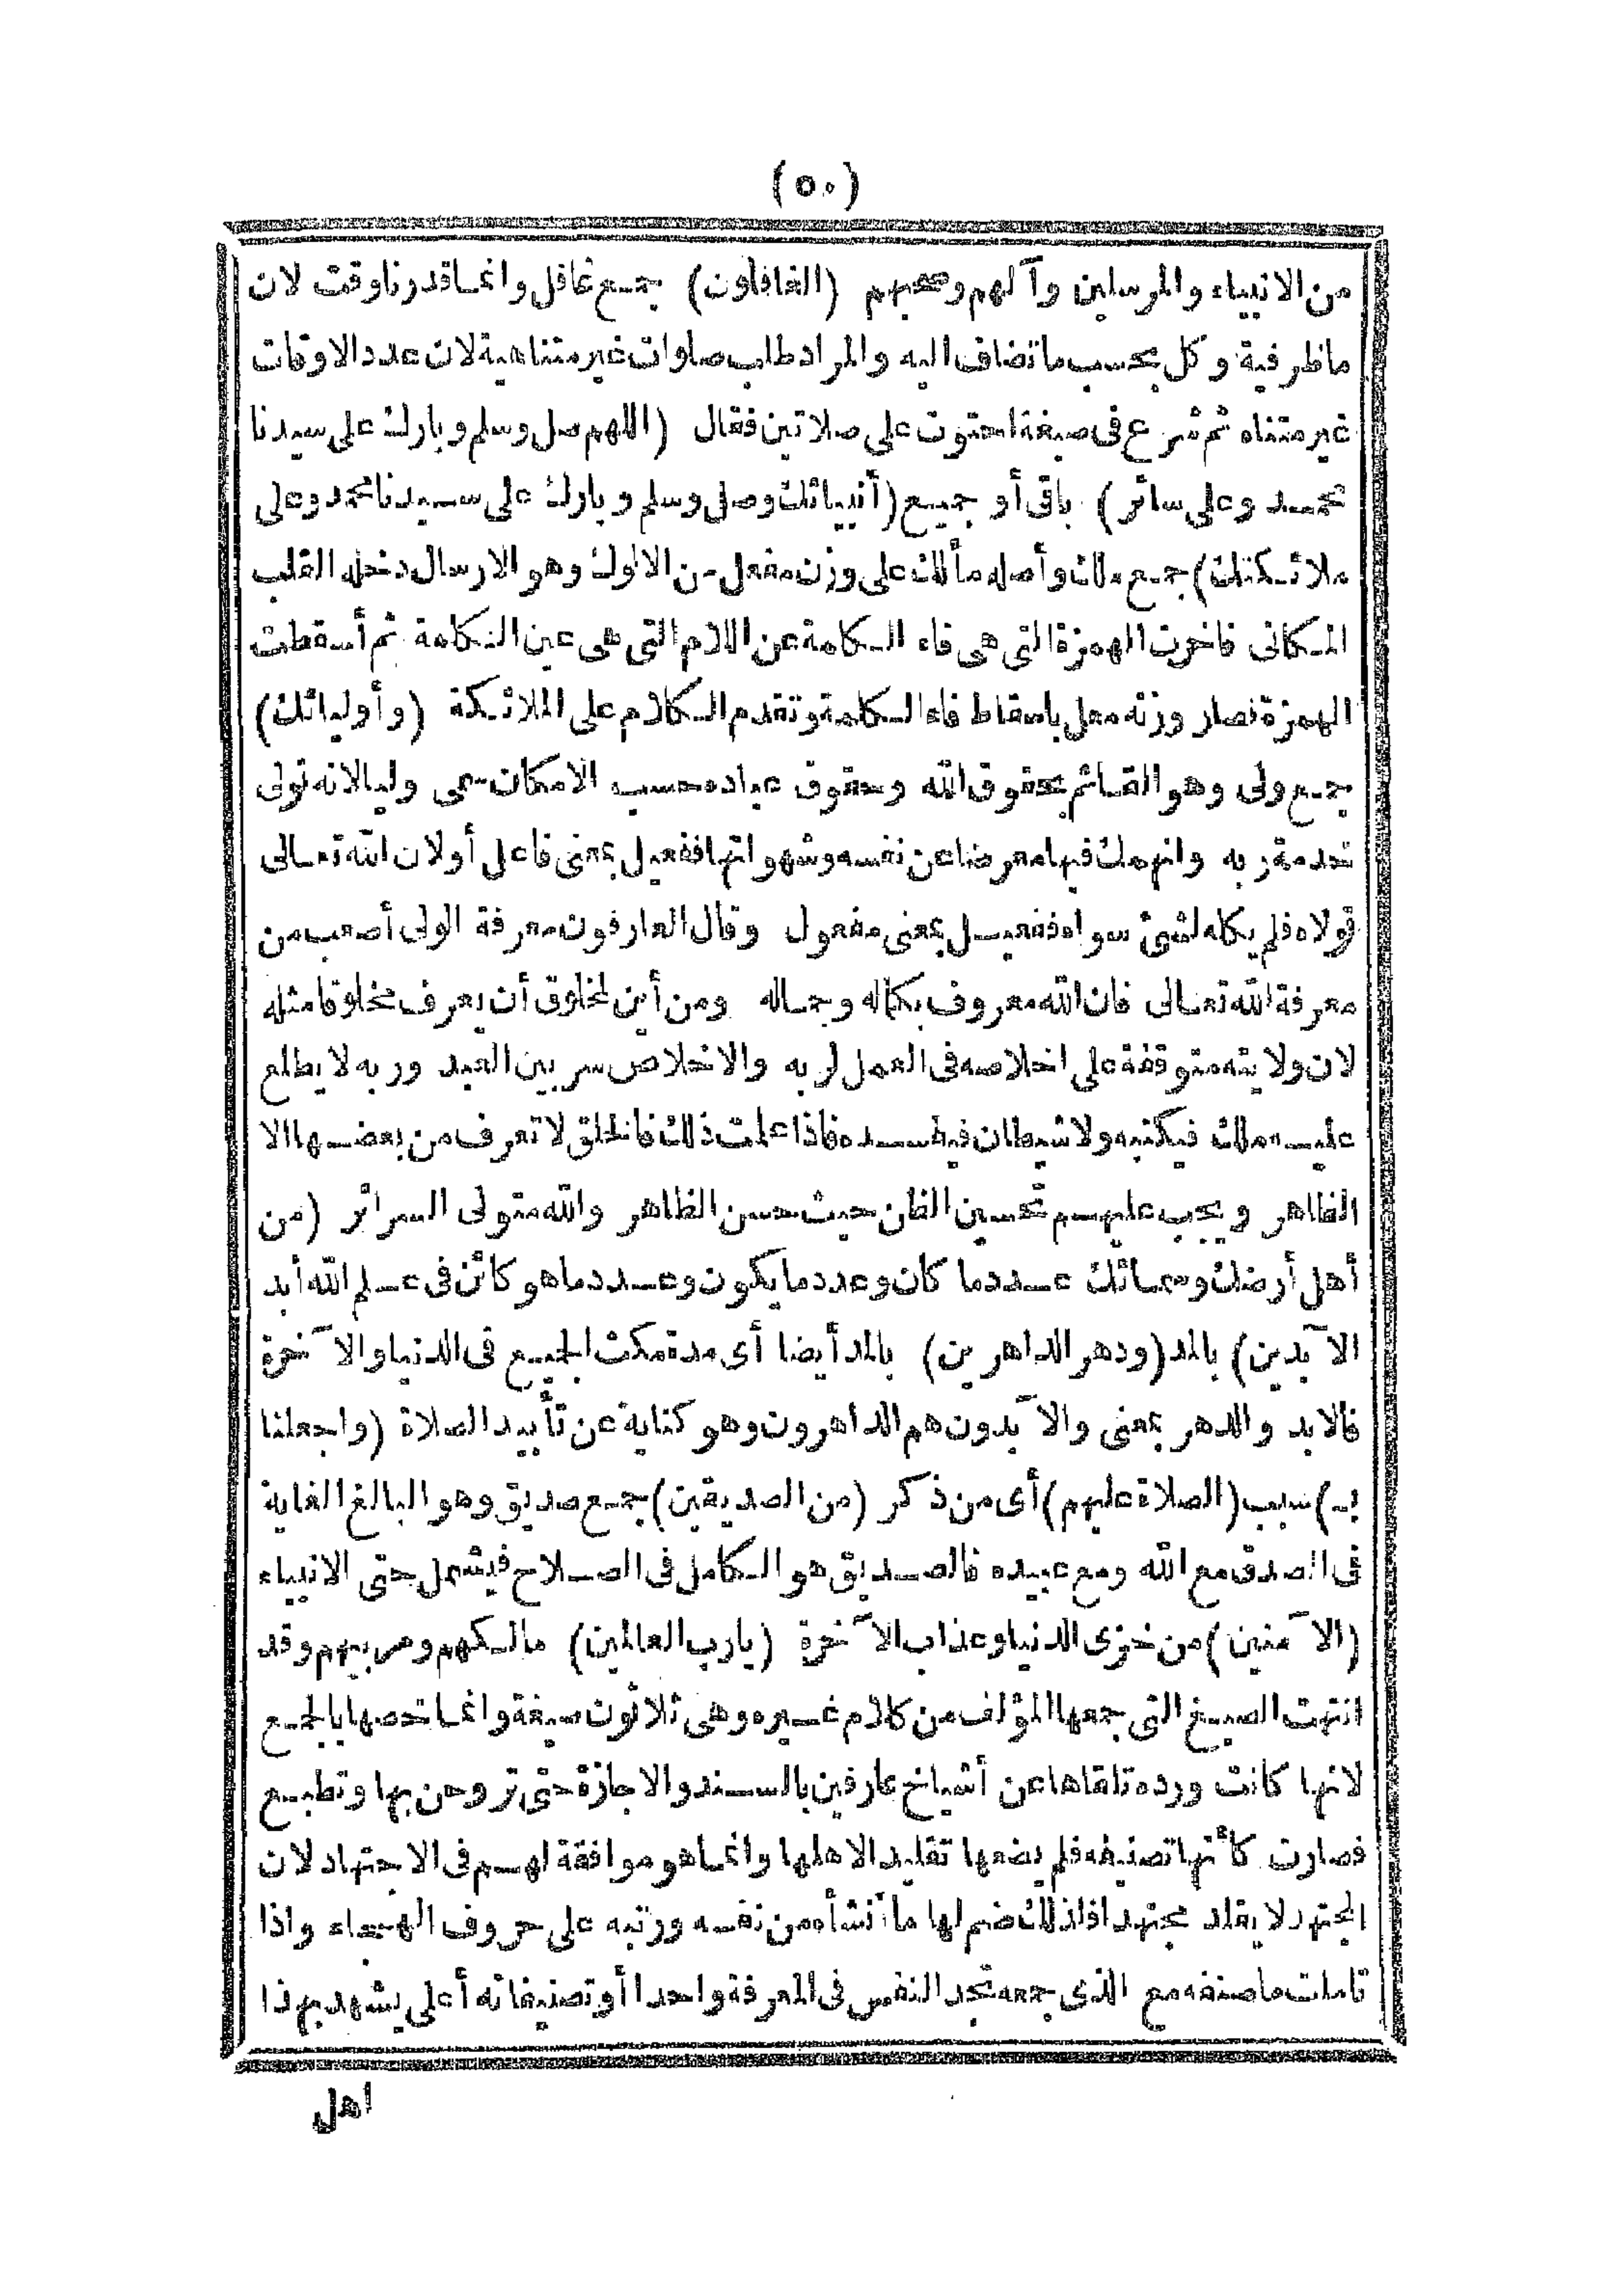 (٥٠)
من الانبياء والمرسلين وآلهم وصحبهم (الغافلون) جمع غافل وانما قدرنا وقت لان
ما ظرفية وكل بحسب ما تضاف اليه والمراد طلب صلوات غير متناهية لان عدد الاوقات
غير متناه ثم شرع فى صيغة احتوت على صلاتين فقال (اللهم صل وسلم وبارك على سيدنا
محمد وعلى سائر) باقى أو جميع (أنبيائك وصلى وسلم وبارك على سيدنا محمد وعلى
ملائكتك) جمع ملك وأصله مألك على وزن مفعل من الالوك وهو الارسال دخله القلب
المكانى فاخرت الهمزة التى هى فاء الكلمة عن اللام التى هى عين الكلمة ثم أسقطت
الهمزة فصار وزنه معل باسقاط فاء الكلمة وتقدم الكلام على الملائكة (وأوليائك)
جمع ولى وهو القائم بحقوق الله وحقوق عباده حسب الامكان سمى وليا لانه تولى
خدمة ربه وانهمك فيها معرضا عن نفسه وشهواتها ففعيل بمعنى فاعل أو لان الله تعالى
تولاه فلم يكله لشئ سواه ففعيل بمعنى مفعول وقال العارفون معرفة الولى أصعب من
معرفة الله تعالى فان الله معروف بكماله وجماله ومن أين لمخلوق أن يعرف مخلوقا مثله
لان ولايته متوقفة على اخلاصه فى العمل لربه والاخلاص سر بين العبد وربه لا يطلع
عليه ملك فيكتبه ولا شيطان فيفسده فاذا علمت ذلك فالخلق لا تعرف من بعضها الا
الظاهر ويجب عليهم تحسين الظن حيث حسن الظاهر والله متولى السرائر (من
أهل أرضك وسمائك عدد ما كان وعدد ما يكون وعدد ما هو كائن فى علم الله أبد
الآبدين) بالمد (ودهر الداهرين) بالمد أيضا أى مدة مكث الجميع فى الدنيا والآخرة
فالابد والدهر بمعنى والآبدون هم الداهرون وهو كناية عن تأبيد الصلاة (واجعلنا
بـ) سبب (الصلاة عليهم) أى من ذكر (من الصديقين) جمع صديق وهو البالغ الغاية
فى الصدق مع الله ومع عبيده فالصديق هو الكامل فى الصلاح فيشمل حتى الانبياء
(الآمنين) من خزى الدنيا وعذاب الآخرة (يا رب العالمين) مالكهم ومربيهم وقد
انتهت الصيغ التى جمعها المؤلف من كلام غيره وهى ثلاثون صيغة وانما خصها بالجمع
لانها كانت ورده تلقاها عن أشياخ عارفين بالسند والاجازة حتى تروحن بها وتطبع
فصارت كأنها تصنيفه فلم يضعها تقليدا لاهلها وانما هو موافقة لهم فى الاجتهاد لان
المجتهد لا يقلد مجتهدا فلذلك ضم لها ما أنشأه من نفسه ورتبه على حروف الهجاء واذا
تاملت ما صنفه مع الذى جمعه تجد النفس فى المعرفة واحدا أو تصنيفاته أعلى يشهد بهذا
اهل